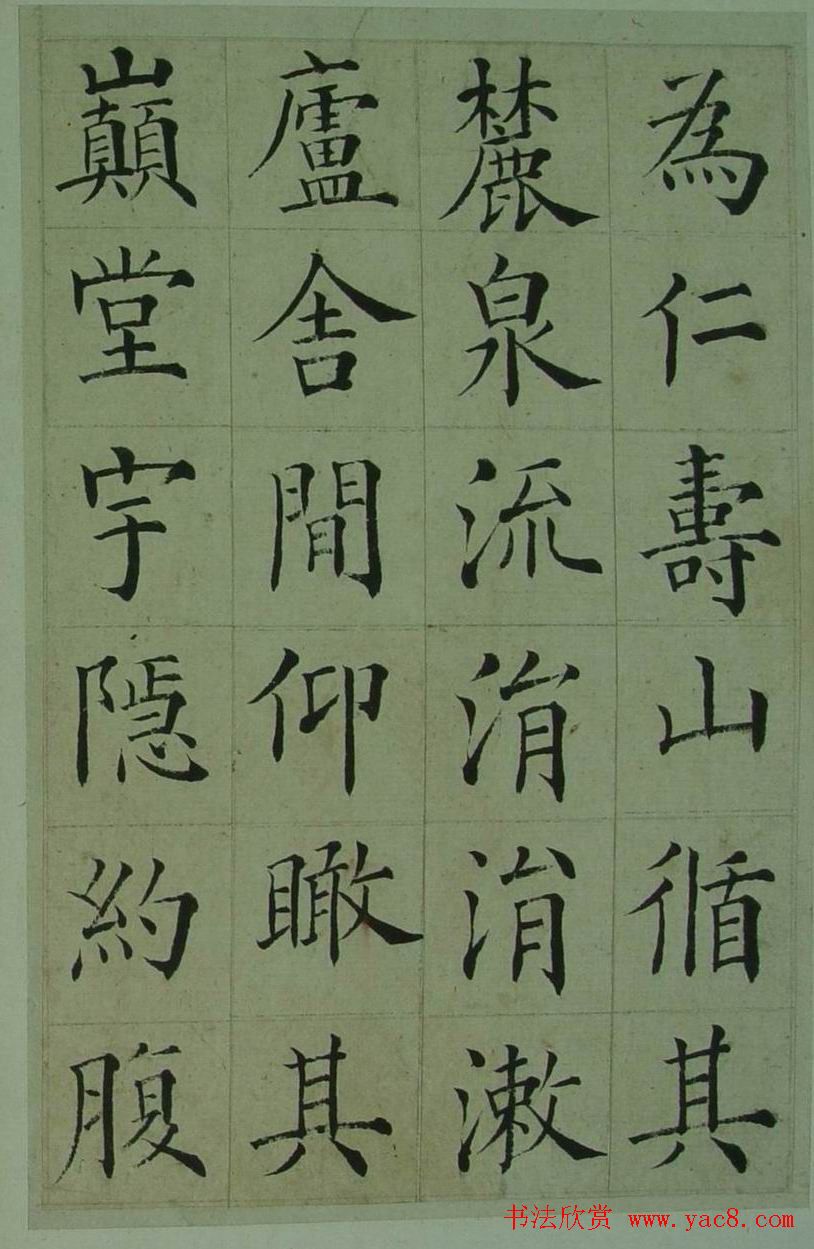 為仁壽山循其
麓泉流涓涓漱
廬舍間仰瞰其
巔堂宇隱約腹
书法欣赏 www.yac8.com